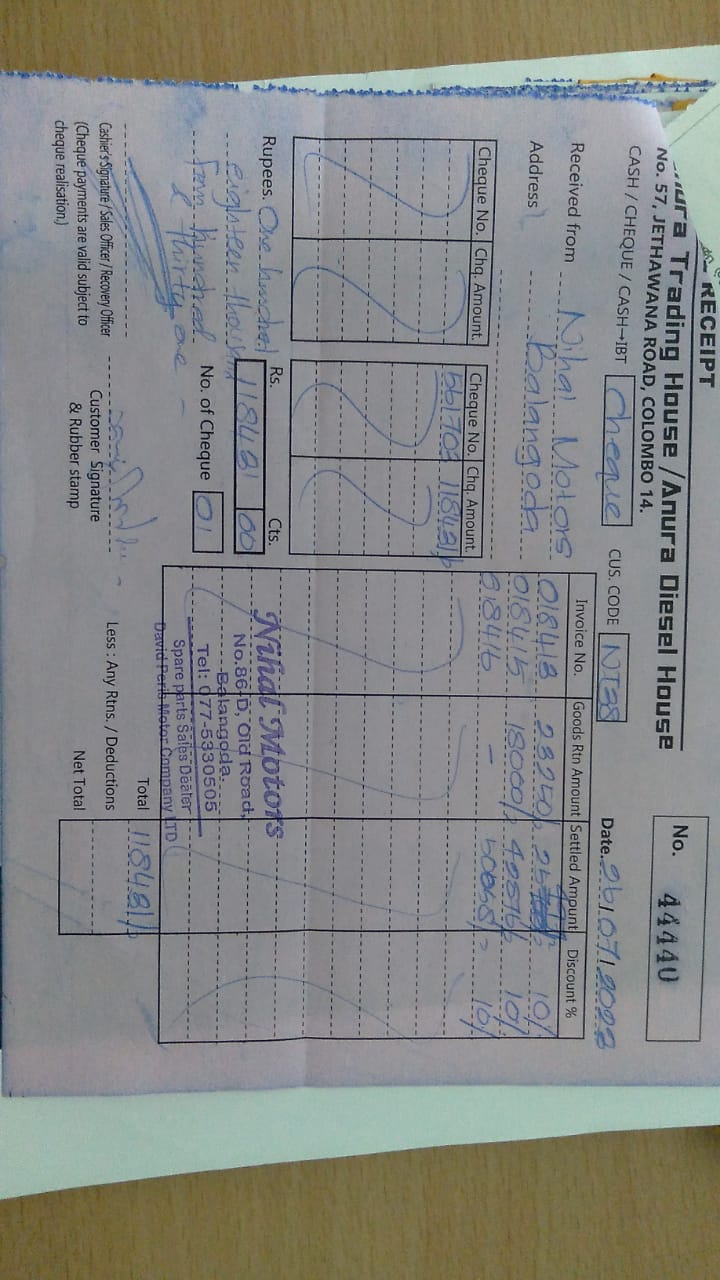 RECEIPT
No. 44440
Anura Trading House / Anura Diesel House
No. 57, JETHAWANA ROAD, COLOMBO 14.
CASH / CHEQUE / CASH→IBT Cheque CUS. CODE Date. 26/07/2022
Received from Nihal Motors
Address Balangoda
Cheque No. Chq. Amount. Cheque No. Chq. Amount.
561702 118481/=
Invoice No. Goods Rtn Amount Settled Amount Discount %
018418 23250/= 10/
018415 18000/= 10/
018416 - 10/
Rupees. One hundred
eighteen thousand
Four hundred
& thirty one -
Rs. Cts.
118481 00
No. of Cheque 01
Nihal Motors
No.86-D, Old Road,
Balangoda.
Tel: 077-5330505
Spare parts Sales Dealer
David Peris Motor Company LTD
Total 118481/=
Less : Any Rtns. / Deductions
Net Total
Cashier's Signature / Sales Officer / Recovery Officer
(Cheque payments are valid subject to
cheque realisation.)
Customer Signature
& Rubber stamp